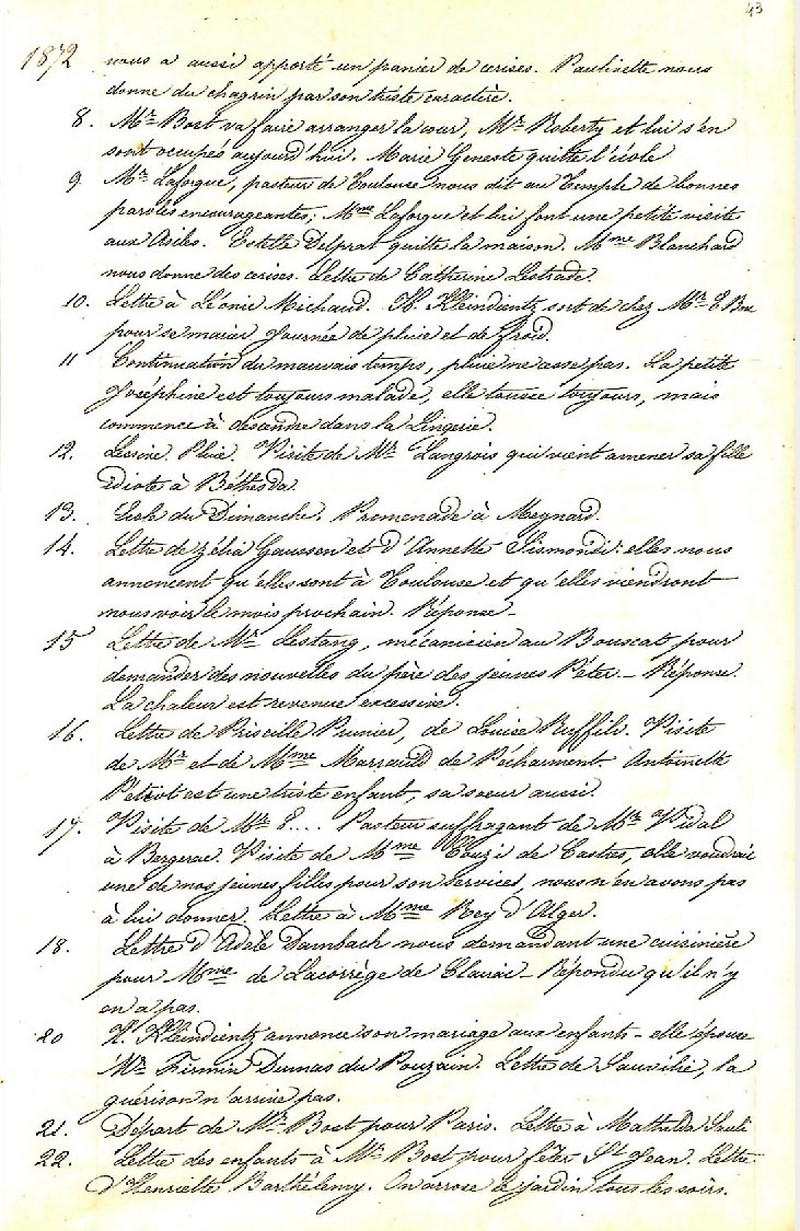 43
1872 nous a aussi apporté un panier de cerises. Paulinette nous
donne du chagrin par son triste caractère.
8. Mr Bost va faire arranger la cour, Mr Roberty et lui s'en
sont occupés aujourd'hui. Marie Geneste quitte l'école
9. Mr Laforgue, pasteur de Toulouse nous dit au Temple de bonnes
paroles encourageantes; Mme Laforgue et lui font une petite visite
aux Asiles. Estelle Delprat quitte la maison. Mme Blanchard
nous donne des cerises. Lettre de Catherine Lestrade.
10. Lettre à Léonie Michaud. H. Kleindientz sort de chez Mr E Bou
pour se marier Journée de pluie et de froid.
11 Continuation du mauvais temps, pluie ne cesse pas. La petite
Joséphine est toujours malade, elle tousse toujours, mais
commence à descendre dans la Lingerie.
12. Lessive. Pluie. Visite de Mr Langrois qui vient amener sa fille
idiote à Béthesda.
13. Ecole du Dimanche. Promenade à Meynard.
14. Lettre de Zélia Gaussen et d'Annette Sismondi: elles nous
annoncent qu'elles sont à Toulouse et qu'elles viendront
nous voir le mois prochain. Réponse -
15 Lettre de Mr Lestang, mécanicien au Bouscat pour
demander des nouvelles du frère des jeunes Péter - Réponse.
La chaleur est revenue excessive.
16. Lettre de Priscille Prunier, de Louise Ruffili. Visite
de Mr et de Mme Marraud de Pécharment. Antoinette
Petiot est une triste enfant, sa soeur aussi.
17. Visite de Mr E.... Pasteur suffragant de Mr Vidal
à Bergerac. Visite de Mme Couzi de Castres, elle voudrait
une de nos jeunes filles pour son service, nous n'en avons pas
à lui donner. Lettre à Mme Rey d'Alger.
18. Lettre d'Adèle Dambach nous demandant une cuisinière
pour Mme de Lacorrège de Clairac - Répondu qu'il n'y
en a pas.
20 H. Kleindientz annonce son mariage aux enfants - elle épouse
Mr Firmin Dumas du Pouzain. Lettre de Sauxilie, la
guérison n'arrive pas.
21. Départ de Mr Bost pour Paris. Lettre à Mathilde
22. Lettre des enfants à Mr Bost pour fêter St Jean. Lettre
d'Henriette Barthélemy. On arrose le jardin tous les soirs.